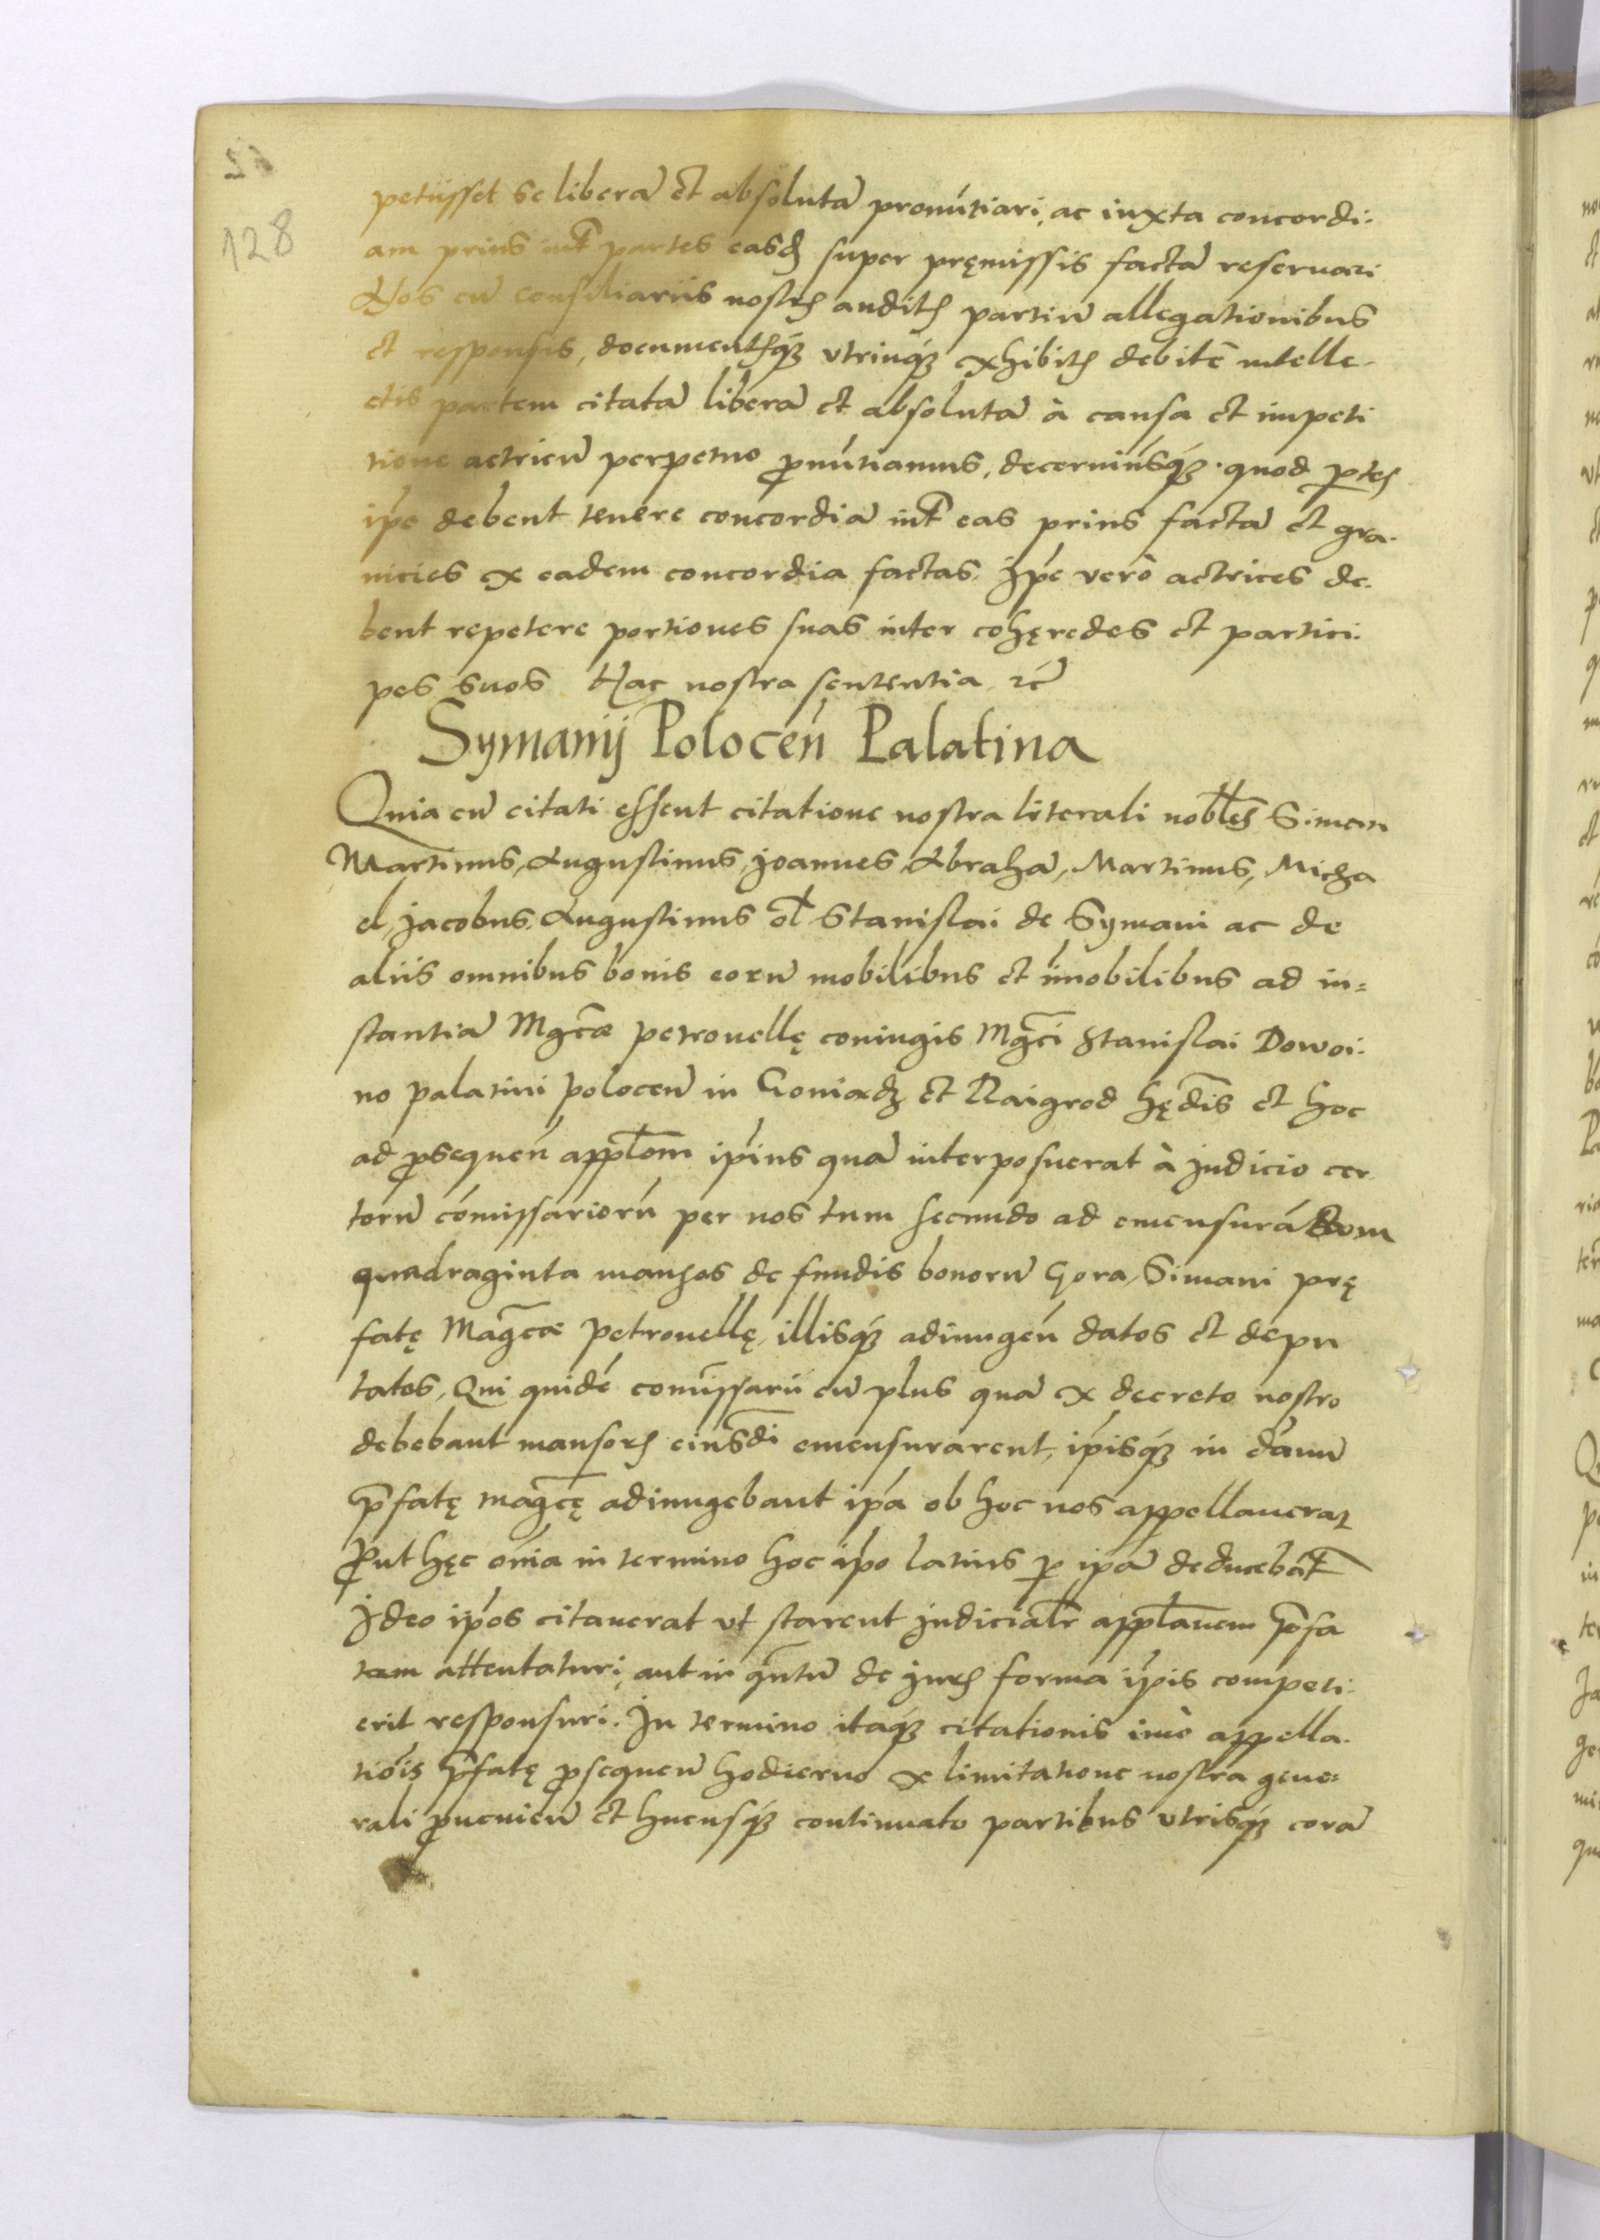 128
petiisset se liberā et absolutā pronūtiari, ac iuxta concordi-
am prius int̄ partes easdē super pręmissis factā reseruari
Nos cū consiliariis nostris auditis partiū allegationibus
et responsis, documentisq́ꝫ vtrinq́ꝫ exhibitis debitē intelle-
ctis partem citatā liberā et absolutā à causa et impeti
tione actricū perpetuo ꝓnūtiamus, decernimusq́ꝫ quod ꝑtes
ip̄e debent tenere concordiā int̄ eas prius factā et gra-
nicies ex eadem concordia factas. Ip̄e verò actrices de-
bent repetere portiones suas inter cohęredes et partici-
pes suos Hac nostra sententia ꝛc̄
Symanij Polocen̄ Palatina
Quia cū citati essent citatione nostra literali nobl̄es Simon
Martinus, Augustinus, Joannes, Abrahā, Martinus, Micha
el, Jacobus, Augustinus ol̄ Stanislai de Symani ac de
aliis omnibus bonis eorū mobilibus et im̄obilibus ad in=
stantiā Mgc̄æ Petronellę coniugis Mgc̄i Stanislai Dowoi-
no palatini polocen̄ in Goniadz et Raigrod hęd̄is et hoc
ad ꝓsequen̄ appl̄om ip̄ius quā interposuerat à Judicio cer
torū cōmissariorū per nos tum secundo ad emensurā
quadraginta mansos de fundis bonorū Gora, Simani prę
fatę Maḡcæ Petronellę, illisq́ꝫ adiungen̄ datos et depu
tatos, Qui quidē com̄issarii cū plus quā ex decreto nostro
debebant mansos eiusd̄i emensurarent, ip̄isq́ꝫ in dānū
p̄fatę maḡcę adiungebant ip̄a ob hoc nos appellauerat
Ꝓut hęc om̄ia in termino hoc ip̄o latius ꝑ ip̄ā deducebāt̄
Ideo ip̄os citauerat vt starent Judicialr̄ appl̄auem p̄fa
tam attentaturi, aut in qn̄tū de Juris forma ip̄is competi-
erit responsuri. In termino itaq́ꝫ citationis imò appella-
tiōis p̄fatę ꝓsequen̄ hodierno ex limitatione nostra gene=
rali ꝓuenien̄ et hucusq́ꝫ continuato partibus vtrisq́ꝫ corā